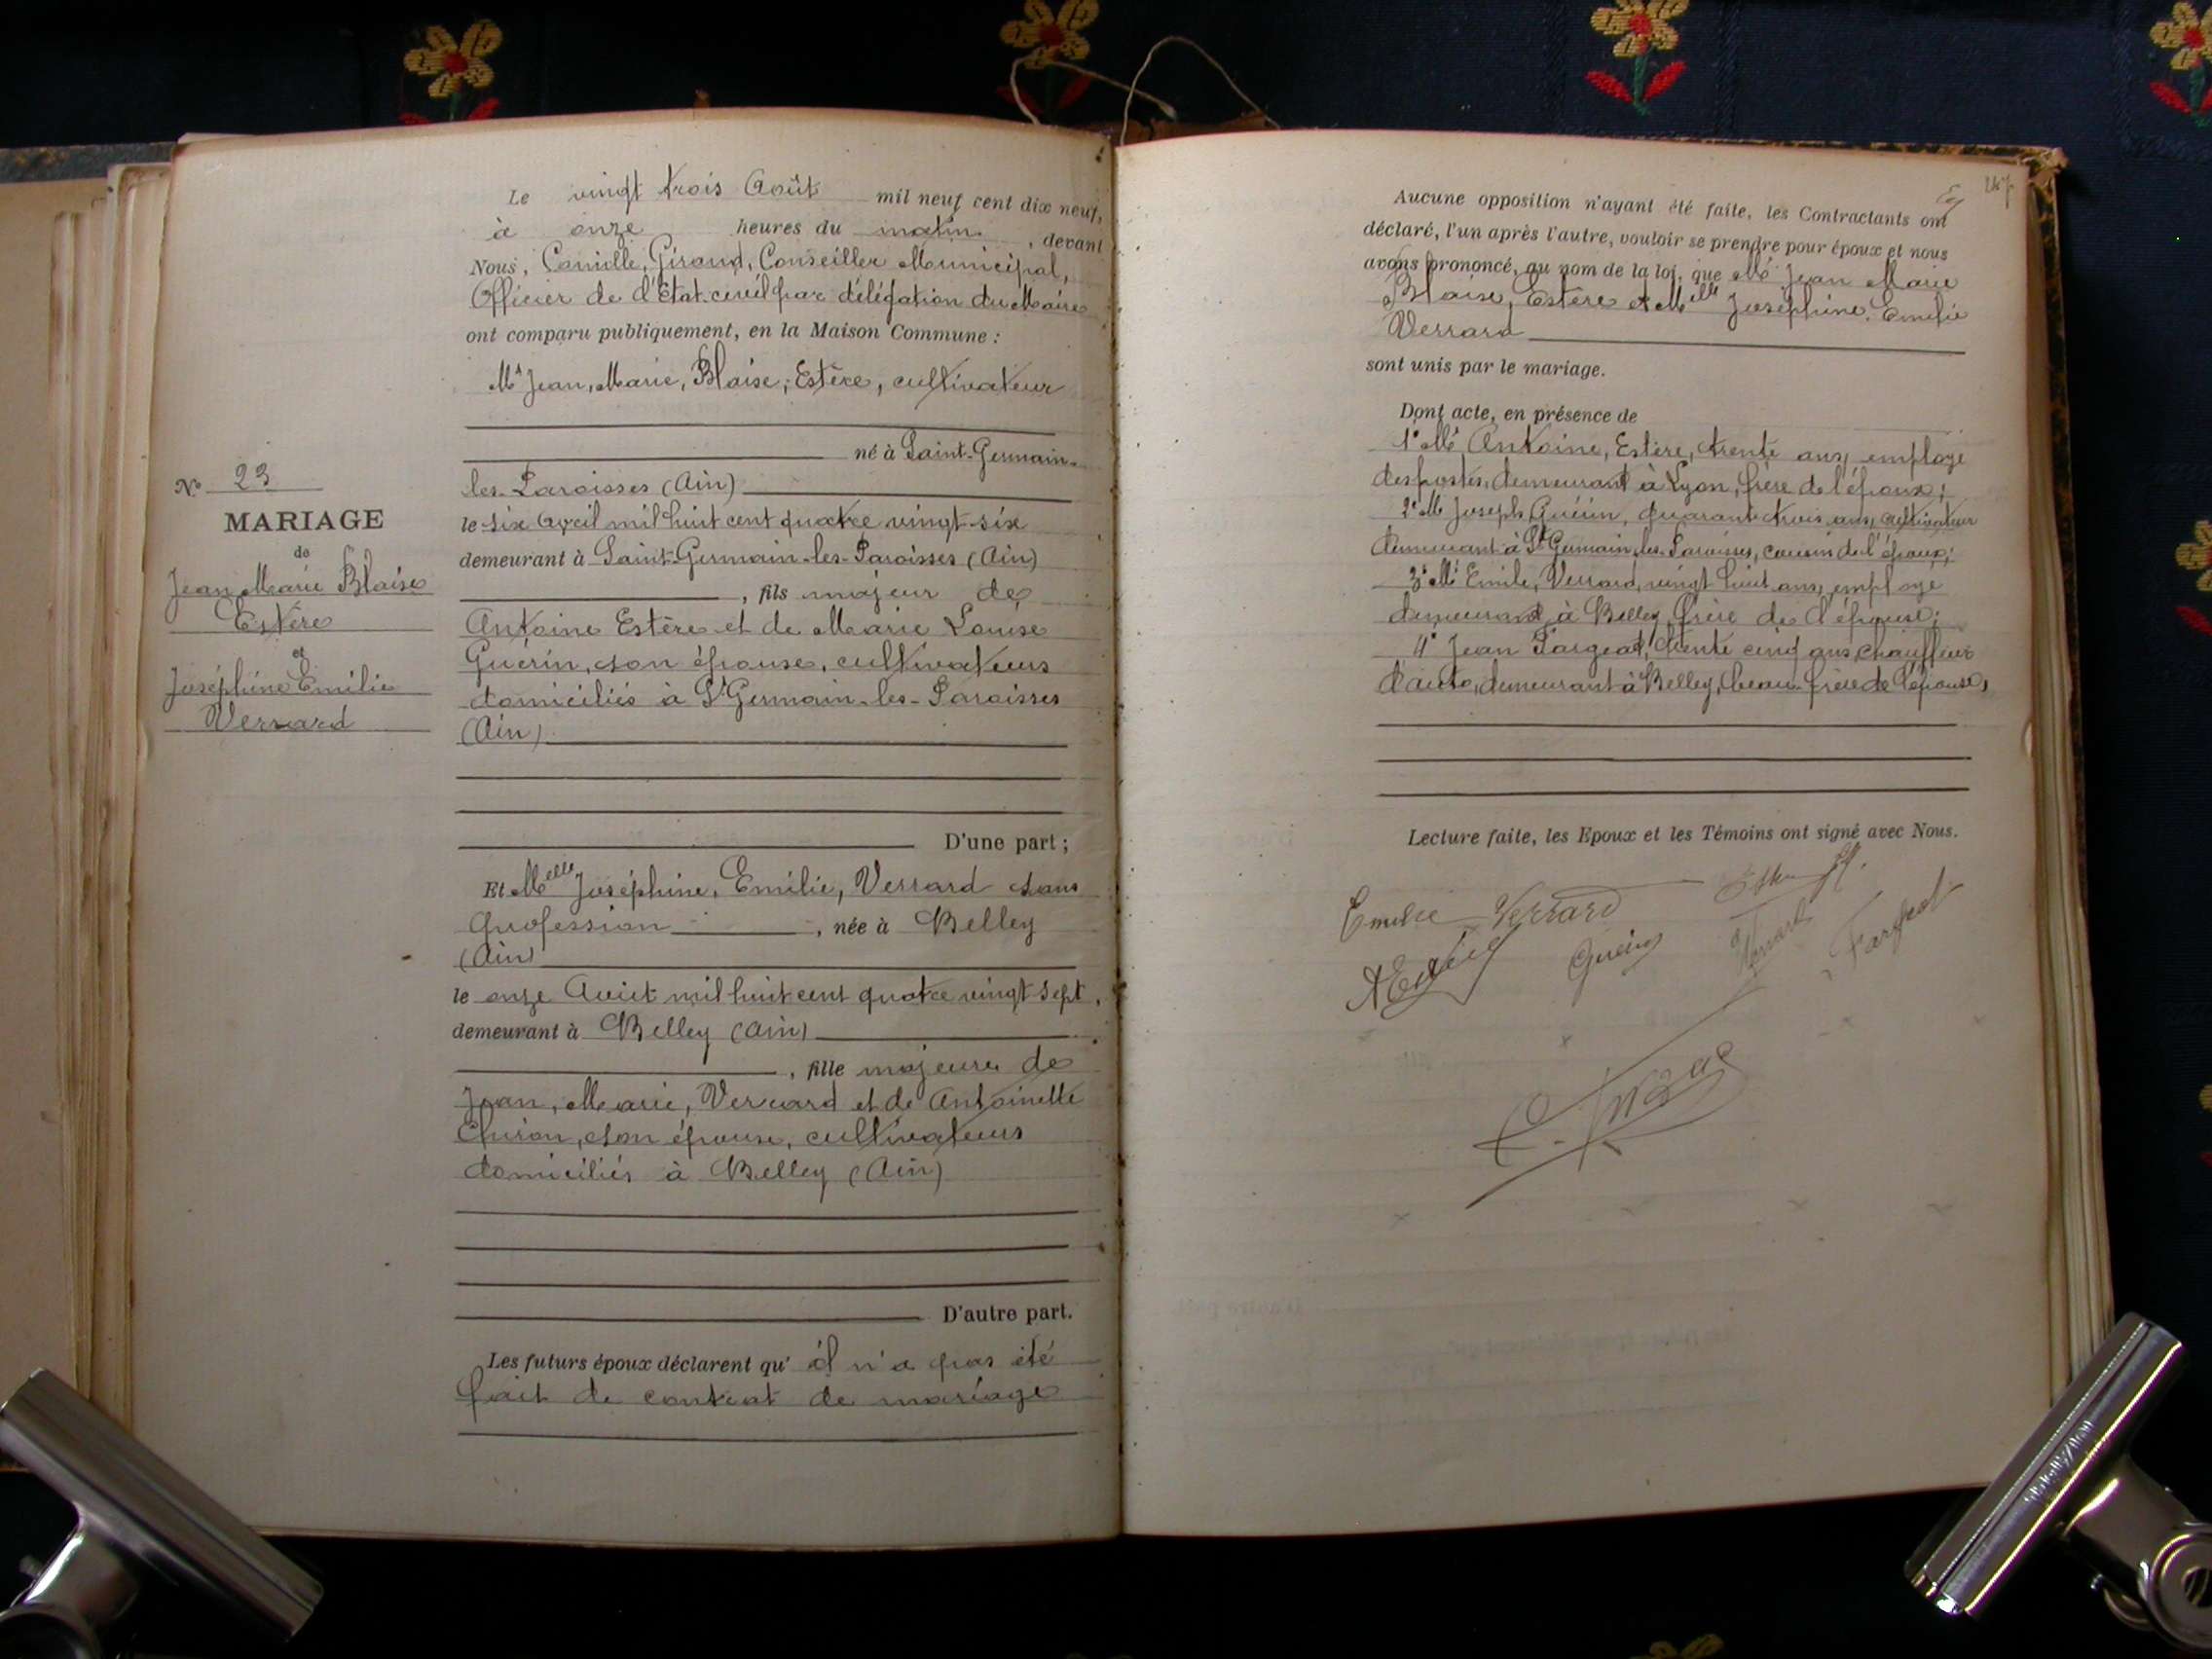 Le vingt trois Août mil neuf cent dix neuf,
à onze heures du matin, devant
Nous, Camille, Giraud, Conseiller Municipal,
Officier de l'Etat-civil par délégation du Maire
ont comparu publiquement, en la Maison Commune :
Mr Jean, Marie, Blaise, Estère, cultivateur
né à Saint-Germain-
les-Paroisses (Ain)
le six Avril mil huit cent quatre vingt-six
demeurant à Saint-Germain-les-Paroisses (Ain)
, fils majeur de
Antoine Estère et de Marie Louise
Guérin, son épouse, cultivateurs
domiciliés à St Germain-les-Paroisses
(Ain)
D'une part ;
Et Melle Joséphine, Emilie, Verrard sans
profession, née à Belley
(Ain)
le onze Août mil huit cent quatre vingt sept,
demeurant à Belley (Ain)
, fille majeure de
Jean, Marie, Verrard et de Antoinette
son épouse, cultivateurs
domiciliés à Belley (Ain)
D'autre part.
Les futurs époux déclarent qu' il n'a pas été
fait de contrat de mariage
No 23
MARIAGE
de
Jean Marie Blaise
Estère
et
Joséphine Emilie
Verrard
Aucune opposition n'ayant été faite, les Contractants ont
déclaré, l'un après l'autre, vouloir se prendre pour époux et nous
avons prononcé, au nom de la loi, que Mr Jean Marie
Blaise, Estère et Melle Joséphine, Emilie
Verrard
sont unis par le mariage.
Dont acte, en présence de
1° Mr Antoine, Estère, trente ans, employé
des postes, demeurant à Lyon, frère de l'époux ;
2° M Joseph Guérin, quarante trois ans, cultivateur
demeurant à St Germain-les-Paroisses, cousin de l'époux ;
3° Mr Emile, Verrard, vingt huit ans, employé
demeurant à Belley, frère de l'épouse ;
4° Jean Fargeot, trente cinq ans, chauffeur
d'auto, demeurant à Belley, beau-frère de l'épouse,
Lecture faite, les Epoux et les Témoins ont signé avec Nous.
Emilie Verrard
Guérin Verrard Fargeot